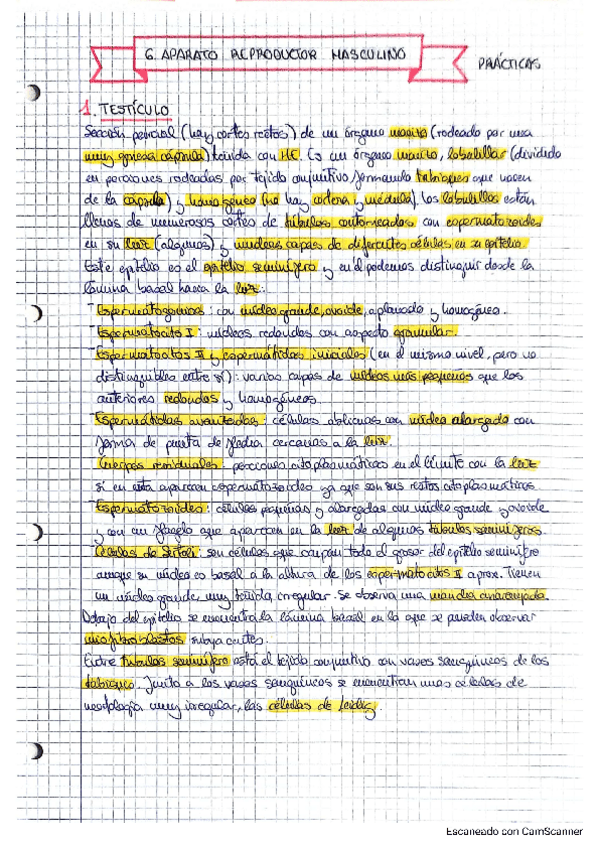 6. APARATO REPRODUCTOR MASCULINO
PRÁCTICAS
1. TESTÍCULO
Sección parcial (hay cortes rectos) de un órgano macizo (rodeado por una
muy gruesa cápsula) teñida con HE. Es un órgano macizo, lobulillar (dividido
en porciones rodeadas por tejido conjuntivo formando tabiques que nacen
de la cápsula) y homogéneo (no hay corteza ni médula). Los lobulillos están
llenos de numerosos cortes de túbulos contorneados con espermatozoides
en su luz (algunos) y muchas capas de diferentes células en su epitelio.
Este epitelio es el epitelio seminífero y en él podemos distinguir desde la
lámina basal hacia la luz:
- Espermatogonias: con núcleo grande, ovoide, aplanado y homogéneo.
- Espermatocito I: núcleos redondos con aspecto granular.
- Espermatocitos II y espermátidas iniciales (en el mismo nivel, pero no
distinguibles entre sí): varias capas de núcleos más pequeños que los
anteriores redondos y homogéneos.
- Espermátidas avanzadas: células oblicuas con núcleo alargado con
forma de punta de flecha cercanas a la luz.
- Cuerpos residuales: porciones citoplasmáticas en el límite con la luz
si en esta aparecen espermatozoides ya que son sus restos citoplasmáticos
- Espermatozoides: células pequeñas y alargadas con núcleo grande y ovoide
y con un flagelo que aparecen en la luz de algunos túbulos seminíferos.
- Células de Sertoli: son células que ocupan todo el grosor del epitelio seminífero
aunque su núcleo es basal a la altura de los espermatocitos II aprox. Tienen
un núcleo grande, muy teñida irregular. Se observa una mancha anaranjada.
Debajo del epitelio se encuentra la lámina basal en la que se pueden observar
miofibroblastos subyacentes.
Entre túbulos seminífero está el tejido conjuntivo con vasos sanguíneos de los
tabiques. Junto a los vasos sanguíneos se encuentran unas células de
morfología muy irregular, las células de Leidig.
Escaneado con CamScanner